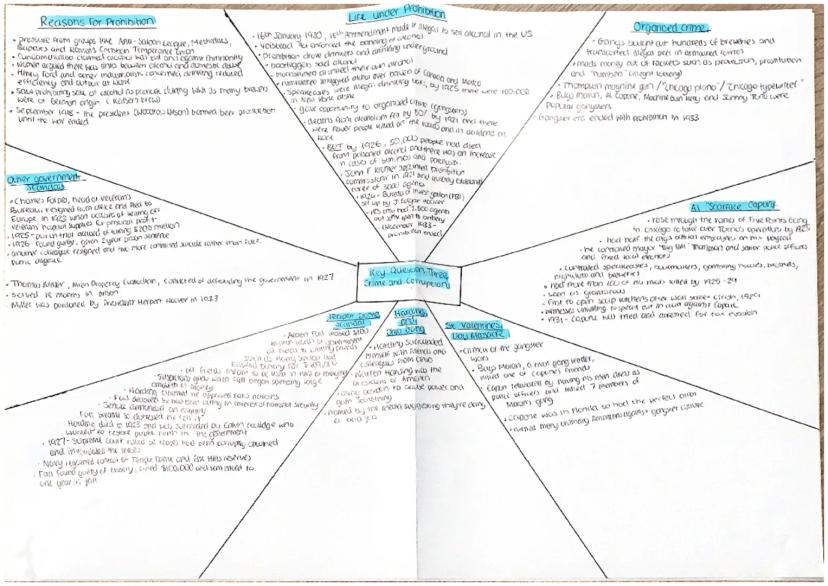 Reasons for Prohibition
• pressure from groups like Anti-Saloon League, Methodists,
Baptists and Women's Christian Temperance Union
• fundamentalist claimed alcohol was evil and against Christianity
• women argued there was links between alcohol and domestic abuse
• Henry Ford and other industrialists concerned drinking reduced
efficiency and output at work
• saw prohibiting sale of alcohol as patriotic during WWI as many brewers
were of German origin
• September 1918 - the president (Woodrow Wilson) banned beer production
until the war ended
Life under Prohibition
• 16th January 1920, 18th Amendment made it illegal to sell alcohol in the US
• Volstead Act enforced the banning of alcohol
• Prohibition drove drinkers and drinking underground
• bootleggers sold alcohol
• moonshiners distilled their own alcohol
• smuggled alcohol over border of Canada and Mexico
• speakeasies were illegal drinking bars, by 1925 there were 100,000
in New York alone
• gave opportunity to organised crime (gangsters)
• deaths from alcoholism fell by 80% by 1921 and there
were fewer people killed on the roads and in accidents at
work
• BUT by 1926, 50,000 people had died
from poisoned alcohol and there was an increase
in cases of blindness and paralysis
• John F Kramer
commissioner in 1921 and
• 1924 - Bureau of Investigation (FBI)
set up by J Edgar Hoover
• December 1933 -
prohibition ended
Organised crime
• Gangs bought out hundreds of breweries and
transported illegal beer in armoured lorries
• made money out of rackets such as protection, prostitution
and "numbers" (illegal lottery)
• Thompson machine gun / "Chicago piano" / "Chicago typewriter"
• Bugs Moran, Al Capone, Machine Gun Kelly and Johnny Torio were
popular gangsters
• Gangster era ended with prohibition in 1933
Other government
scandals
• Charles Forbes, head of Veterans
Bureau, resigned from office and fled to
Europe in 1923 when accused of selling off
Veterans hospital supplies for personal profit
• 1925 - put on trial accused of taking $200 million
• 1926 - found guilty, given 2 year prison sentence
• another colleague resigned and too committed suicide rather than face
public disgrace
• Thomas Miller, Alien Property Custodian, convicted of defrauding the government in 1927
• served 18 months in prison
• Miller was pardoned by President Herbert Hoover in 1933
Al "Scarface" Capone
• rose through the ranks of Five Points Gang
in Chicago to take over Torrio's operations by 1925
• had half the city's official employees on his payroll
• he controlled mayor "Big Bill" Thompson and senior police officers
and fixed local elections
• controlled speakeasies, bookmakers, gambling houses, brothels,
nightclubs and breweries
• had more than 200 of his rivals killed by 1925-29
• seen as glamorous
• first to open soup kitchens after Wall Street Crash, 1929
• witnesses unwilling to speak out in court against Capone
• 1931 - Capone was tried and arrested for tax evasion
Key Question Three
Crime and Corruption
Teapot Dome
Scandal
• Albert Fall leased $100
• Oil fields meant to be used in times of emergency
• Suspicions grew when Fall began spending large
amounts of money
• Harding claimed he approved Fall's actions
• Fall declared he had been acting in interest of national security
• Senate demanded an enquiry
• Harding died in 1923 and was succeeded by Calvin Coolidge who
wanted to restore public faith in the government
• 1927 - Supreme Court ruled oil leases had been corruptly obtained
and invalidated the leases
• Navy regained control of Teapot Dome and Elk Hills reserves
• Fall found guilty of bribery, fined $100,000 and sentenced to
one year in jail
Harding
and
Ohio Gang
• Harding surrounded
himself with friends and
colleagues from Ohio
• Warren Harding was the
president of America
using position to abuse power and
gain something
• named by the media suggesting they're doing
a bad job
St Valentine's
Day Massacre
• climax of the gangster
wars
• Bugs Moran, a rival gang leader,
killed one of Capone's friends
• Capone retaliated by having his men dress as
police officers and killed 7 members of
Moran's gang
• Capone was in Florida so had the perfect alibi
• turned many ordinary Americans against gangster culture